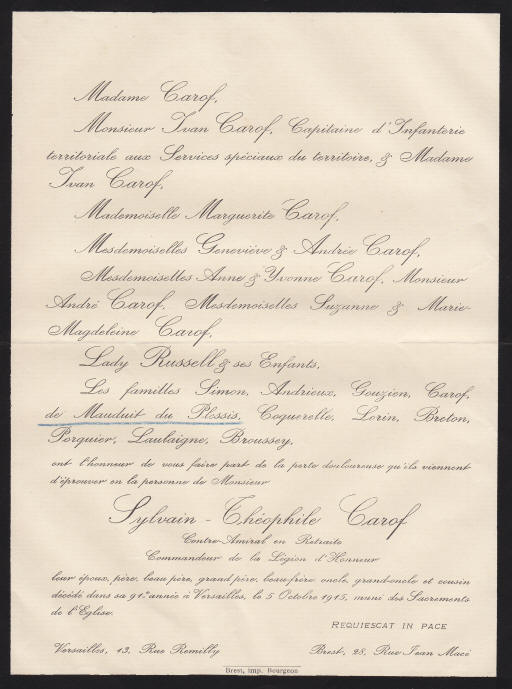 Madame Carof,
Monsieur Ivan Carof, Capitaine d'Infanterie
territoriale aux Services spéciaux du territoire, & Madame
Ivan Carof,
Mademoiselle Marguerite Carof,
Mesdemoiselles Geneviève & Andrée Carof,
Mesdemoiselles Anne & Yvonne Carof, Monsieur
André Carof, Mesdemoiselles Suzanne & Marie-
Magdeleine Carof,
Lady Russell & ses Enfants,
Les familles Simon, Andrieux, Gouzien, Carof,
de Mauduit du Plessis, Coquerelle, Lorin, Breton,
Porquier, Laulaigne, Broussey,
ont l'honneur de vous faire part de la perte douloureuse qu'ils viennent
d'éprouver en la personne de Monsieur
Sylvain-Théophile Carof
Contre-Amiral en Retraite
Commandeur de la Légion d'Honneur
leur époux, père, beau père, grand père, beau-frère oncle, grand-oncle et cousin
décédé dans sa 91e année à Versailles, le 5 Octobre 1915, muni des Sacrements
de l'Eglise.
REQUIESCAT IN PACE
Versailles, 13, Rue Remilly Brest, 28, Rue Jean Macé
Brest, imp. Bourgeon